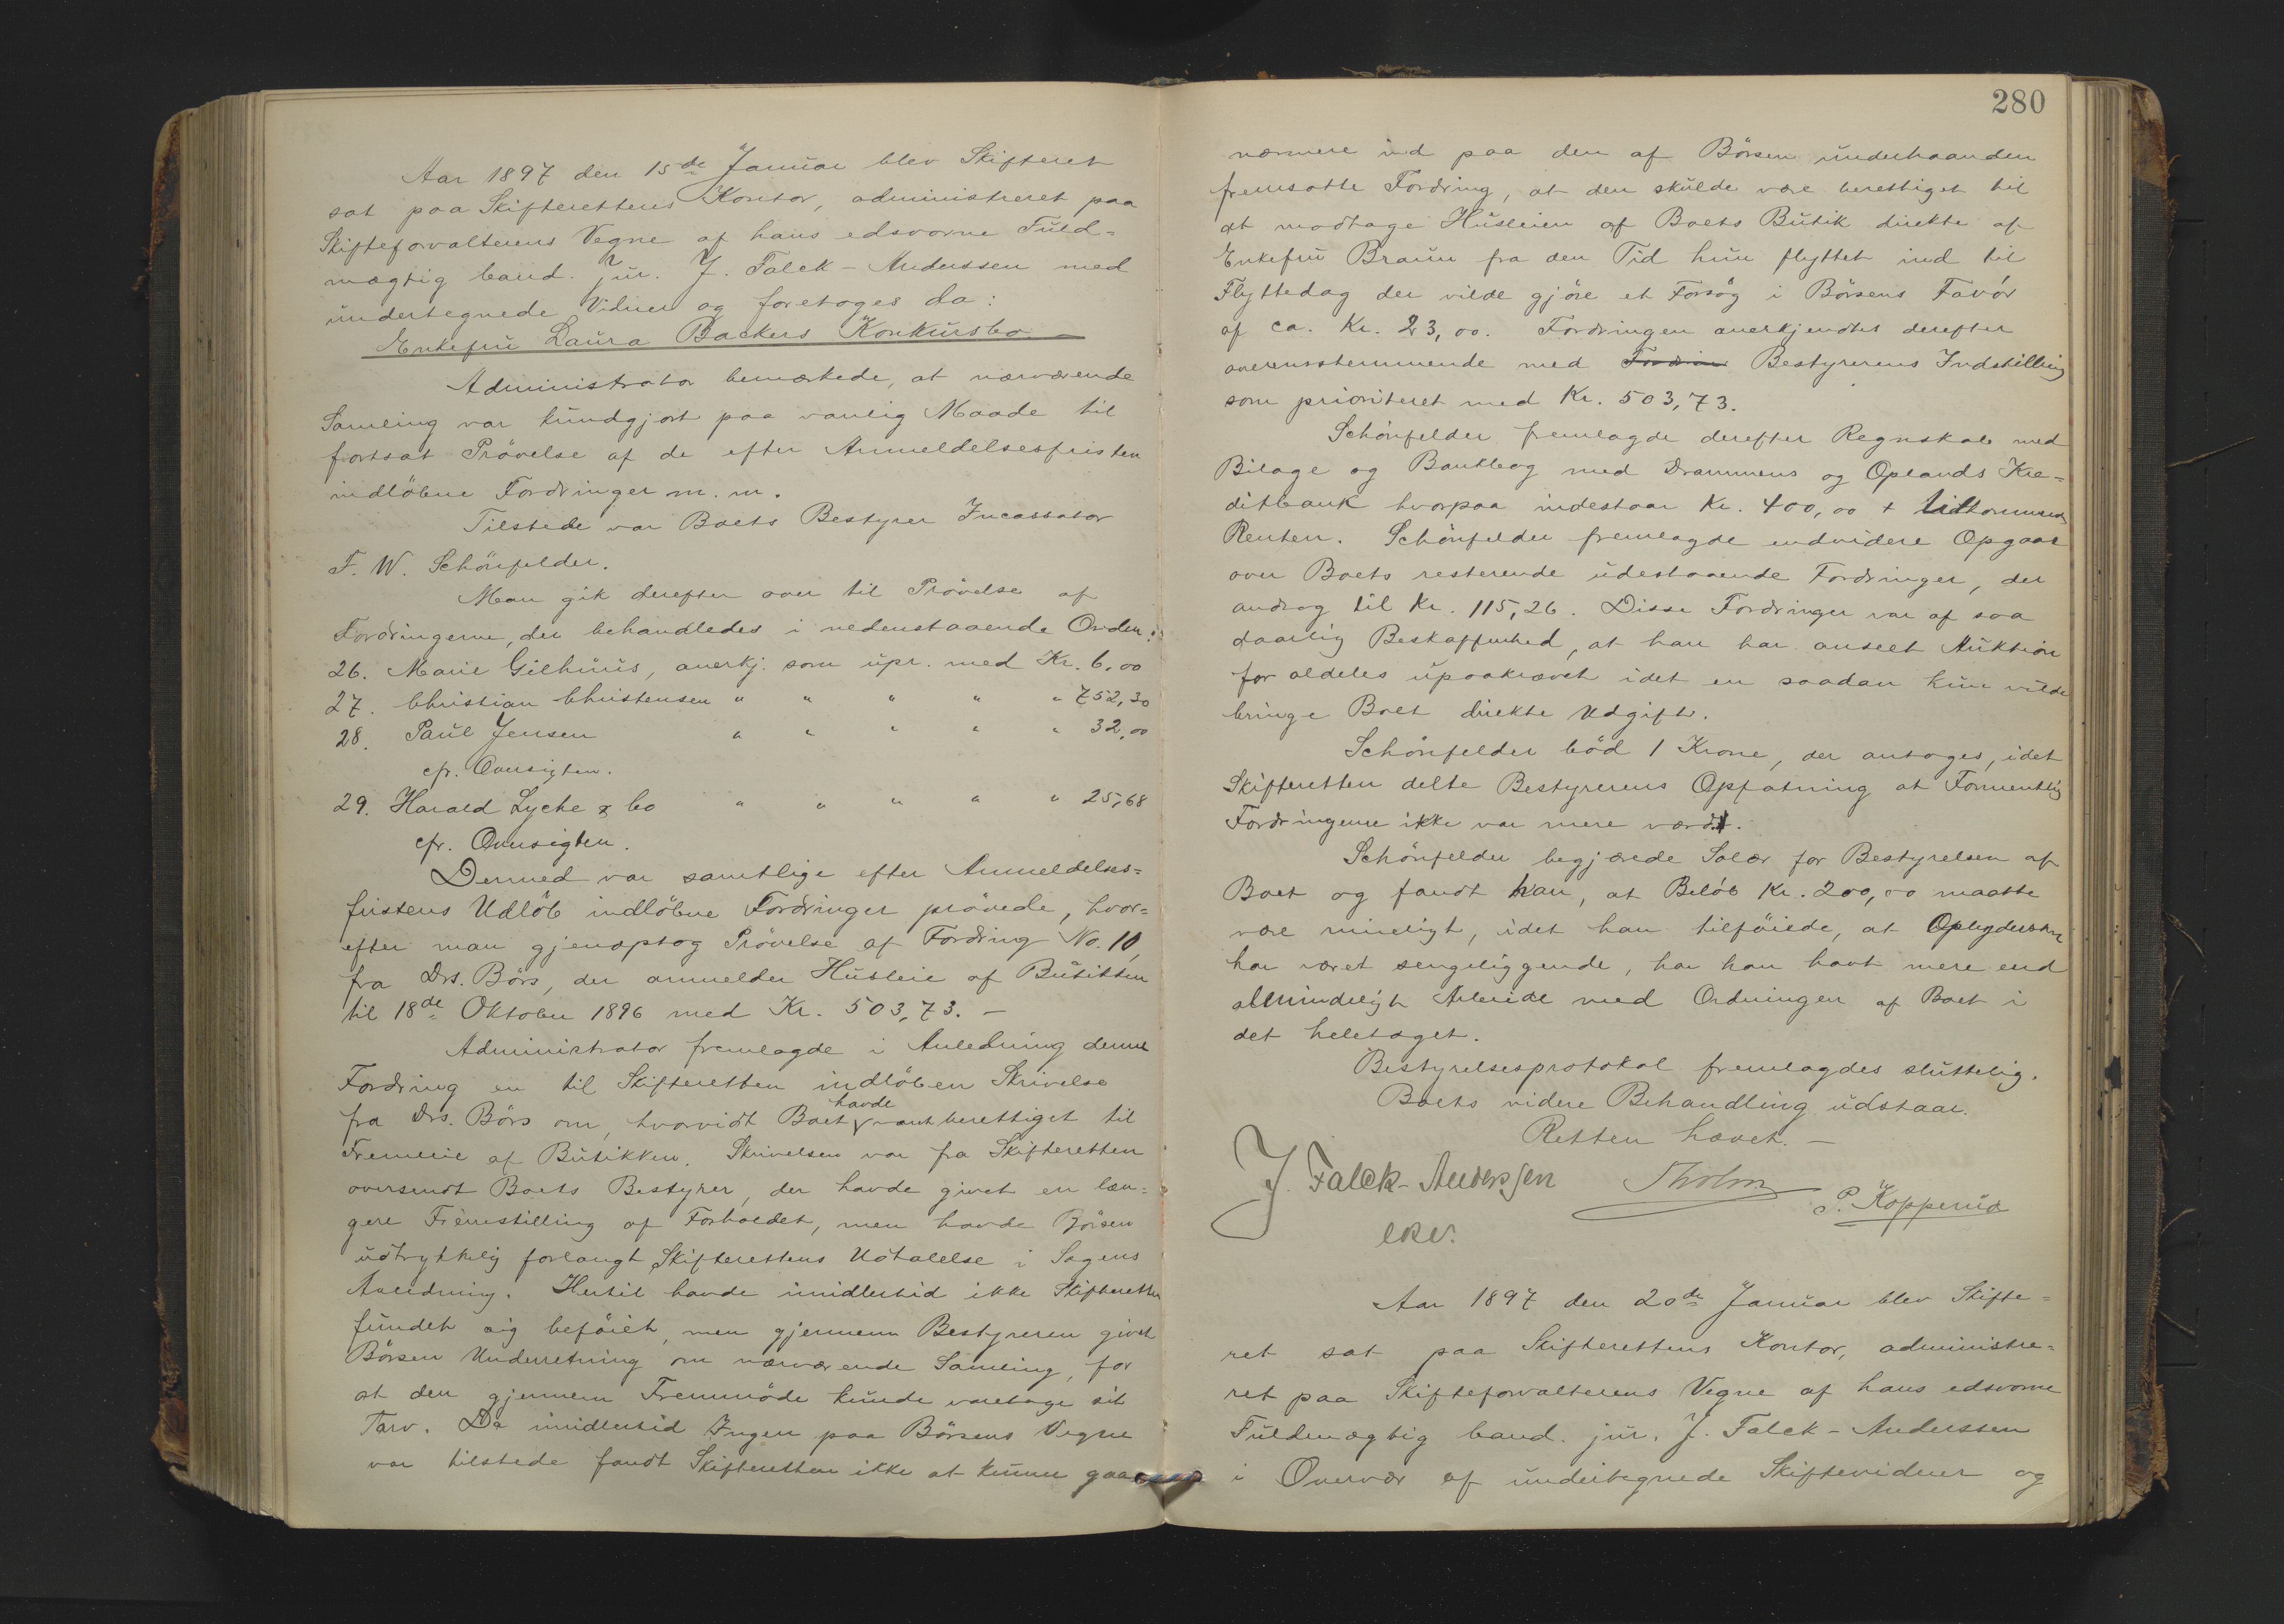 Aar 1897 den 15de Januar blev Skifteret
sat paa Skifterettens Kontor, administreret paa
Skifteforvalterens Vegne af hans edsvorne Fuld=
mægtig Cand. jur. J. Falck-Anderssen med
undertegnede Vidner og foretoges da:
Enkefru Laura Backers Konkursbo. —
Administrator bemærkede, at nærværende
Samling var kundgjort paa vanlig Maade til
fortsat Prövelse af de efter Anmeldelsesfristen
indlöbne Fordringer m. m.
Tilstede var Boets Bestyrer Incassator
F. W. Schönfelder.
Man gik derefter over til Prövelse af
Fordringerne, der behandledes i nedenstaaende Orden:
26. Marie Gilhuus, anerkj. som upr. med Kr. 6,00
27. Christian Christensen " " " " " 752,30
28. Paul Jensen " " " " " 32,00
cfr. Oversigten.
29. Harald Lyche & Co " " " " " 25,68
cfr. Oversigten.
Dermed var samtlige efter Anmeldelses=
fristens Udlöb indlöbne Fordringer prövede, hvor=
efter man gjenoptog Prövelse af Fordring No. 10,
fra Drs. Börs, der anmelder Husleie af Butikken
til 18de Oktober 1896 med Kr. 503,73. —
Administrator fremlagde i Anledning denne
Fordring en til Skifteretten indlöben Skrivelse
fra Drs. Börs om, hvorvidt Boet havde været berettiget til
Fremleie af Butikken. Skrivelsen var fra Skifteretten
oversendt Boets Bestyrer, der havde givet en læn=
gere Fremstilling af Forholdet, men havde Börsen
udtrykkelig forlangt Skifterettens Udtalelse i Sagens
Anledning. Hertil havde imidlertid ikke Skifteretten
fundet sig beföiet, men gjennem Bestyreren givet
Börsen Underretning om nærværende Samling, for
at den gjennem Fremmöde kunde varetage sit
Tarv. Da imidlertid Ingen paa Börsens Vegne
var tilstede fandt Skifteretten ikke at kunne gaa
280
nærmere ind paa den af Börsen underhaanden
fremsatte Fordring, at den skulde være berettiget til
at modtage Husleien af Boets Butik direkte af
Enkefru Braun fra den Tid hun flyttet ind til
Flyttedag der vilde gjöre et Forsög i Börsens Favör
af ca. Kr. 23,00. Fordringen anerkjendtes derefter
overensstemmende med Bestyrerens Indstilling
som prioriteret med Kr. 503,73.
Schönfelder fremlagde derefter Regnskab med
Bilage og Bankbog med Drammens og Oplands Kre=
ditbank hvorpaa indestaar Kr. 400,00 +
Renter. Schönfelder fremlagde endvidere Opgave
over Boets resterende udestaaende Fordringer, der
androg til Kr. 115,26. Disse Fordringer var af saa
daarlig Beskaffenhed, at han har anseet Auktion
for aldeles upaakrævet idet en saadan kun vilde
bringe Boet direkte Udgift.
Schönfelder böd 1 Krone, der antoges, idet
Skifteretten delte Bestyrerens Opfatning at Formentlig
Fordringerne ikke var mere værd.
Schönfelder begjærede Salær for Bestyrelsen af
Boet og fandt han, at Belöb Kr. 200,00 maatte
være rimeligt, idet han tilföiede, at
har været sengeliggende, har han havt mere end
almindeligt Arbeide med Ordningen af Boet i
det heletaget.
Bestyrelsesprotokol fremlagdes sluttelig.
Boets videre Behandling udstaar.
Retten hævet. —
J. Falck-Anderssen Tholm P. Kopperud
esv.
Aar 1897 den 20de Januar blev Skifte=
ret sat paa Skifterettens Kontor, administre=
ret paa Skifteforvalterens Vegne af hans edsvorne
Fuldmægtig Cand. jur. J. Falck-Anderssen
i Overvær af undertegnede Skiftevidner og